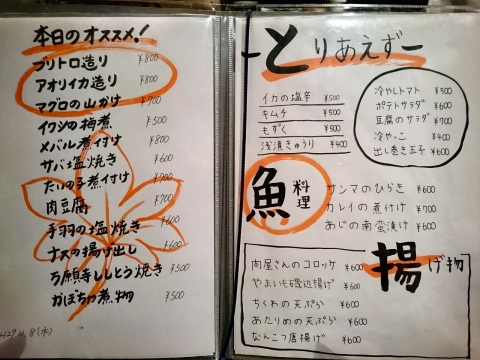 本日のオススメ!
ブリトロ造り ¥800
アオリイカ造り ¥800
マグロの山かけ ¥700
イワシの梅煮 ¥500
メバル煮付け ¥800
サバ塩焼き ¥600
たいの子煮付け ¥700
肉豆腐 ¥700
手羽の塩焼き ¥600
ナスの揚げ出し ¥600
万願寺ししとう焼き ¥500
かぼちゃ煮物 ¥500
H29.11.8(水)
ーとりあえずー
イカの塩辛 ¥500
キムチ ¥500
もずく ¥500
浅漬きゅうり ¥400
冷やしトマト ¥500
ポテトサラダ ¥600
豆腐のサラダ ¥700
冷やっこ ¥400
出し巻き玉子 ¥600
魚料理
サンマのひらき ¥600
カレイの煮付け ¥700
あじの南蛮漬け ¥600
揚げ物
肉屋さんのコロッケ ¥600
やまいも磯辺揚げ ¥600
ちくわの天ぷら ¥600
あたりめの天ぷら ¥600
なんこつ唐揚げ ¥600